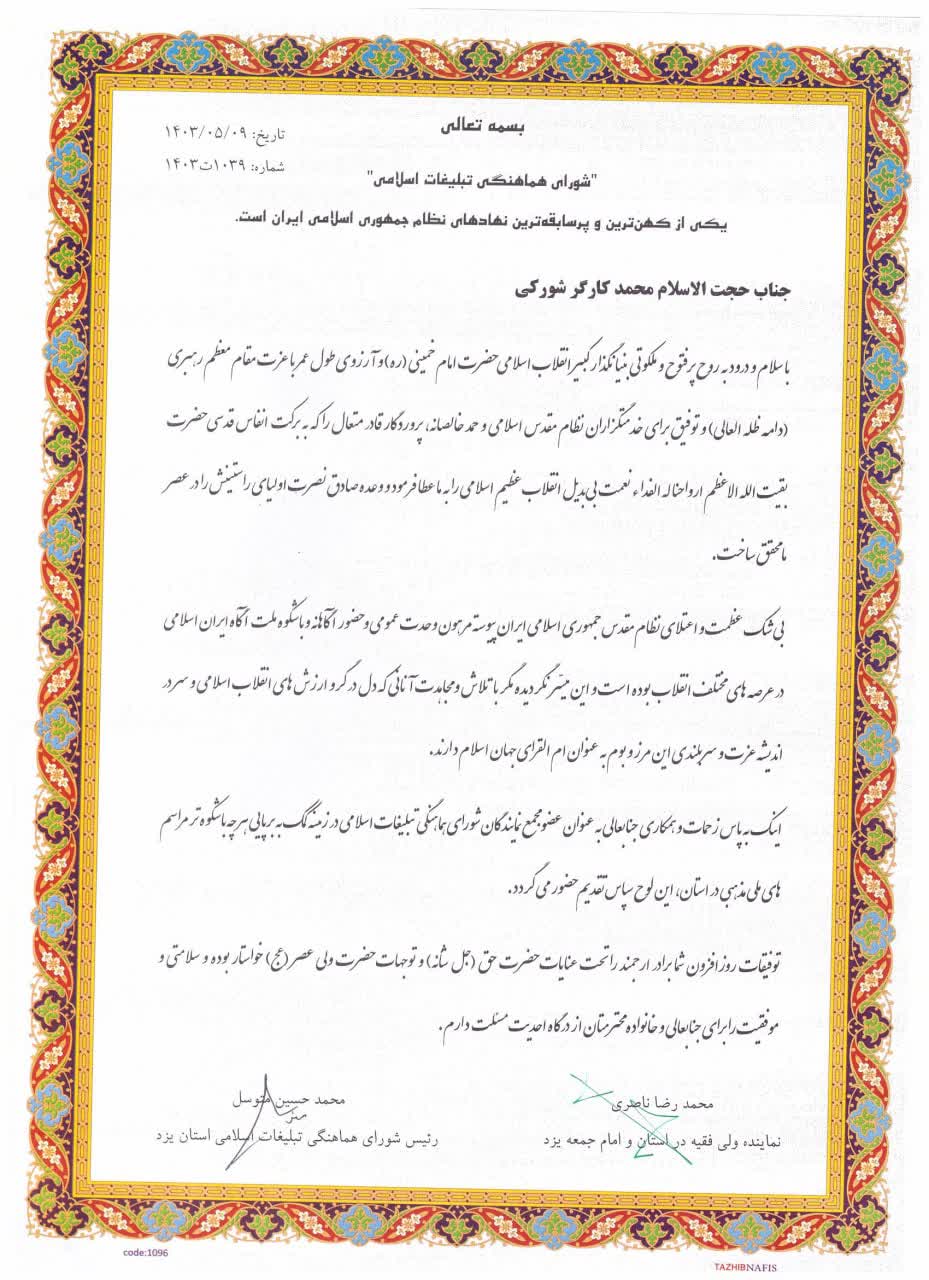 بسمه تعالی
تاریخ: ۱۴۰۳/۰۵/۰۹
شماره: ۱۰۳۹ت۱۴۰۳
"شورای هماهنگی تبلیغات اسلامی"
یکی از کهن‌ترین و پرسابقه‌ترین نهادهای نظام جمهوری اسلامی ایران است.
جناب حجت الاسلام محمد کارگر شورکی
با سلام و درود به روح پرفتوح و ملکوتی بنیانگذار کبیر انقلاب اسلامی حضرت امام خمینی (ره) و آرزوی طول عمر با عزت مقام معظم رهبری
(دامه ظله العالی) و توفیق برای خدمتگزاران نظام مقدس اسلامی و حمد خالصانه، پروردگار قادر متعال را که به برکت انفاس قدسی حضرت
بقیت الله الاعظم ارواحنا له الفداء نعمت بی بدیل انقلاب عظیم اسلامی را به ما عطا فرمود و وعده صادق نصرت اولیای راستینش را در عصر
ما محقق ساخت.
بی شک عظمت و اعتلای نظام مقدس جمهوری اسلامی ایران پیوسته مرهون وحدت عمومی و حضور آگاهانه و باشکوه ملت آگاه ایران اسلامی
در عرصه های مختلف انقلاب بوده است و این میسّر نگردیده مگر با تلاش و مجاهدت آنانی که دل در گرو ارزش های انقلاب اسلامی و سر در
اندیشه عزت و سربلندی این مرز و بوم به عنوان ام القرای جهان اسلام دارند.
اینک به پاس زحمات و همکاری جنابعالی به عنوان عضو مجمع نمایندگان شورای هماهنگی تبلیغات اسلامی در زمینه کمک به برپایی هرچه باشکوه تر مراسم
های ملی مذهبی در استان، این لوح سپاس تقدیم حضور می گردد.
توفیقات روزافزون شما برادر ارجمند را تحت عنایات حضرت حق (جل شأنه) و توجهات حضرت ولی عصر (عج) خواستار بوده و سلامتی و
موفقیت را برای جنابعالی و خانواده محترمتان از درگاه احدیت مسئلت دارم.
محمد رضا ناصری
نماینده ولی فقیه در استان و امام جمعه یزد
محمد حسین متوسل
رئیس شورای هماهنگی تبلیغات اسلامی استان یزد
code:1096
TAZHIBNAFIS